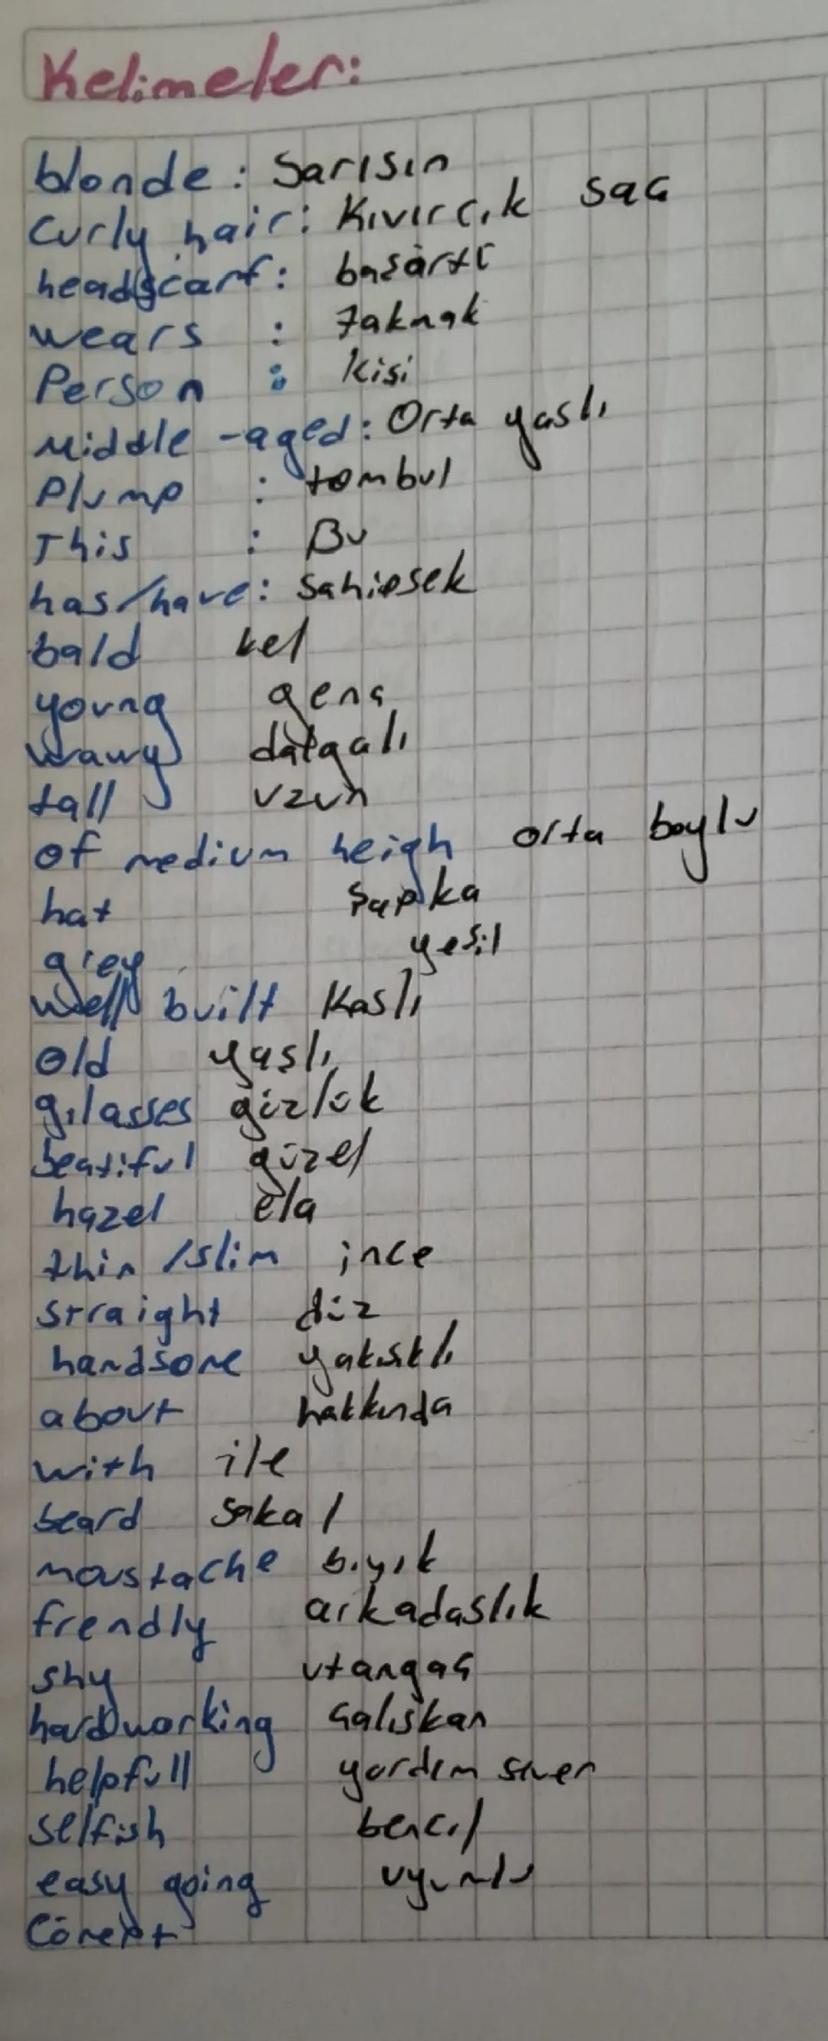 Kelimeler:
blonde: Sarısın
Curly hair: Kıvırcık saç
headscarf: basörtü
wears : Takmak
Person : kisi
Middle-aged: Orta yaslı
Plump : tombul
This : Bu
has/have: Sahipsek
bald kel
young genç
wawy dalgalı
tall uzun
of medium heigh orta boylu
hat Şapka
grey yesil
well built Kaslı
old yaslı
gılasses gözlük
beatiful güzel
hazel ela
thin /slim ince
straight düz
handsome yakısklı
about hakkında
with ile
beard Sakal
moustache bıyık
frendly arkadaslık
shy utangaç
hardworking Çalıskan
helpfull yardım sever
selfish bencil
easy going uyumlu